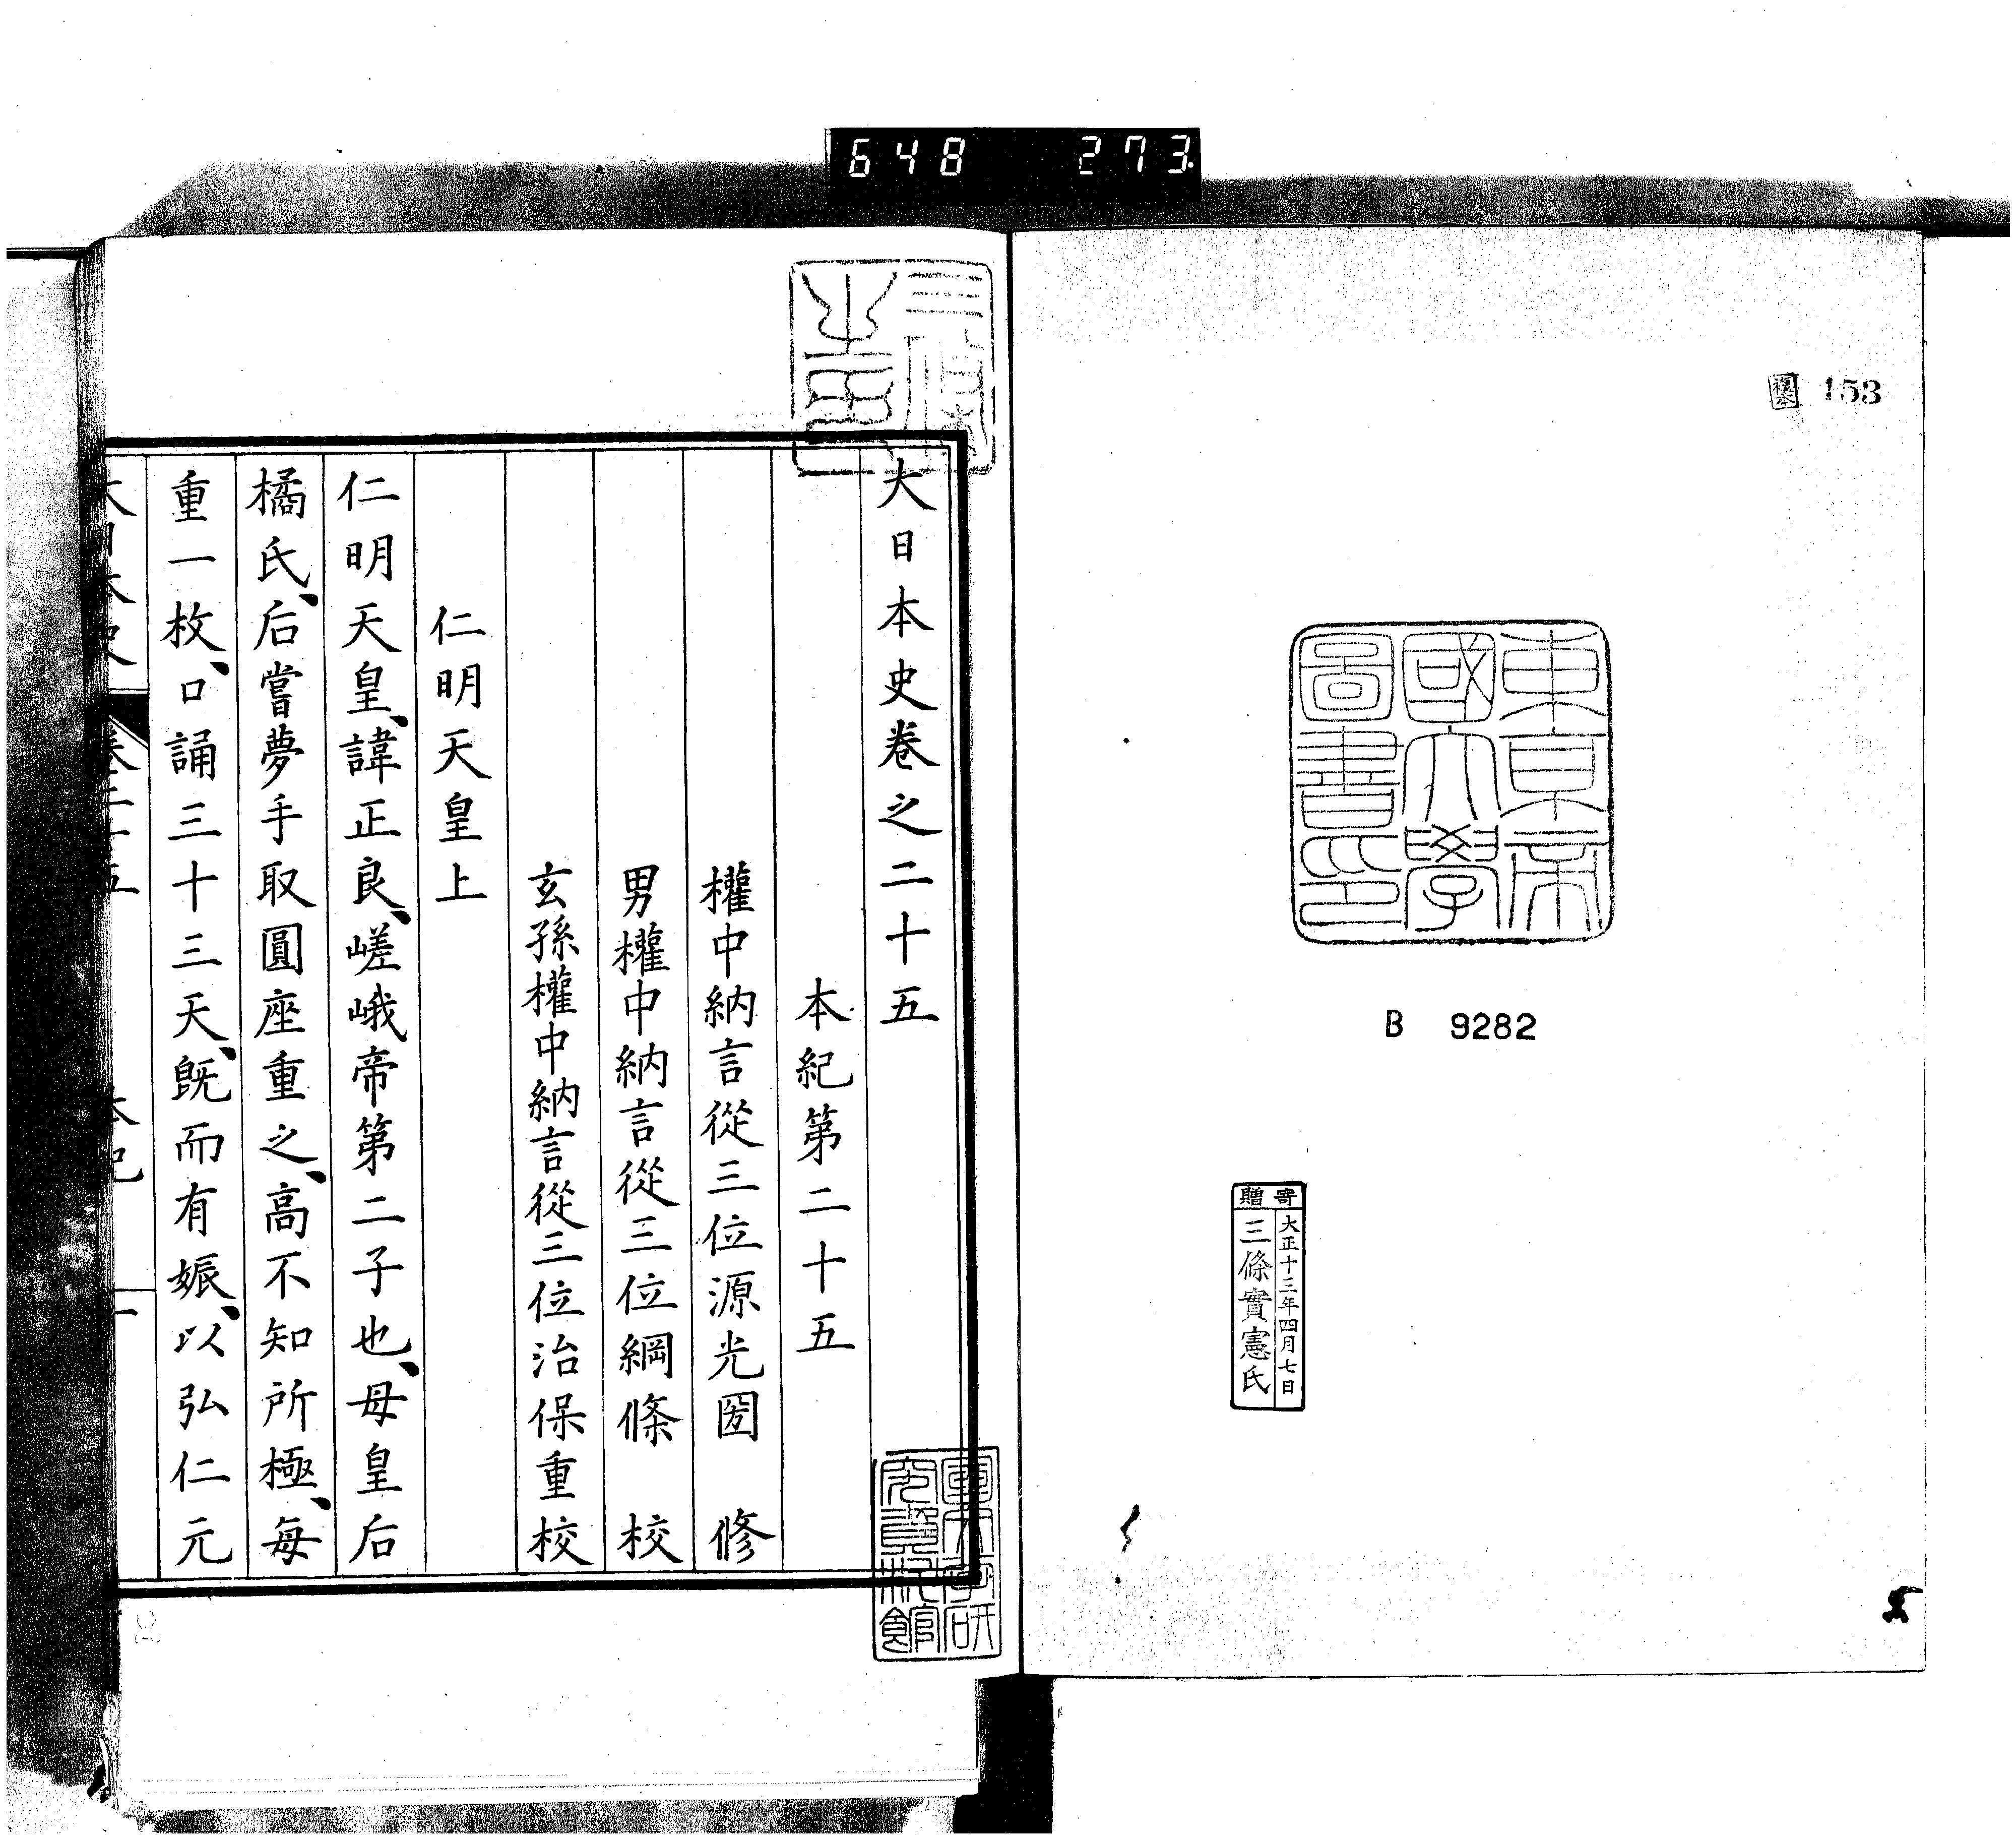 648 273
153
東京帝
國大學
圖書印
B 9282
寄贈
大正十三年四月七日
三條實憲氏
三條
大日本史卷之二十五
本紀第二十五
權中納言從三位源光圀 修
男權中納言從三位綱條 校
玄孫權中納言從三位治保重校
仁明天皇上
仁明天皇、諱正良、嵯峨帝第二子也、母皇后
橘氏、后嘗夢手取圓座重之、高不知所極、每
重一枚、口誦三十三天、既而有娠、以弘仁元